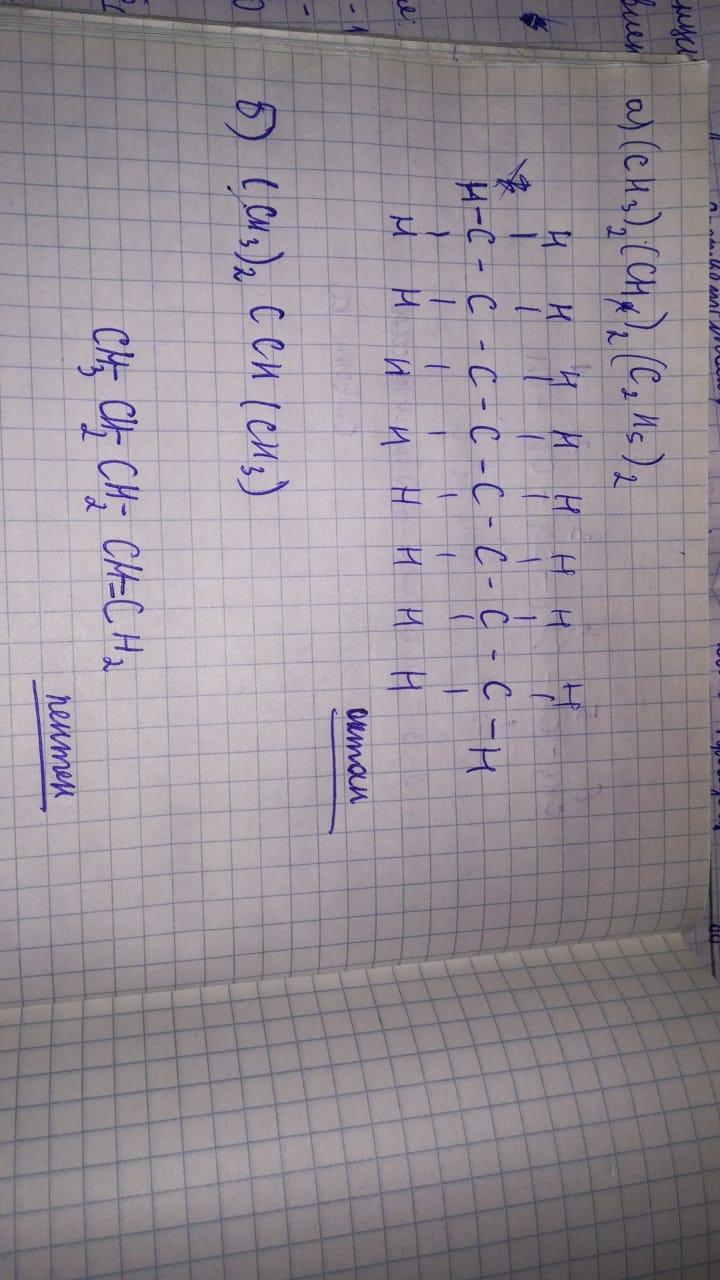 а) (CH₃)₂(CH)₂(C₂H₅)₂
H H H H H H H H
H-C-C-C-C-C-C-C-C-H
H H H H H H H H
октан
Б) (CH₃)₂ C CH (CH₃)
CH₃-CH₂-CH₂-CH=CH₂
пентен